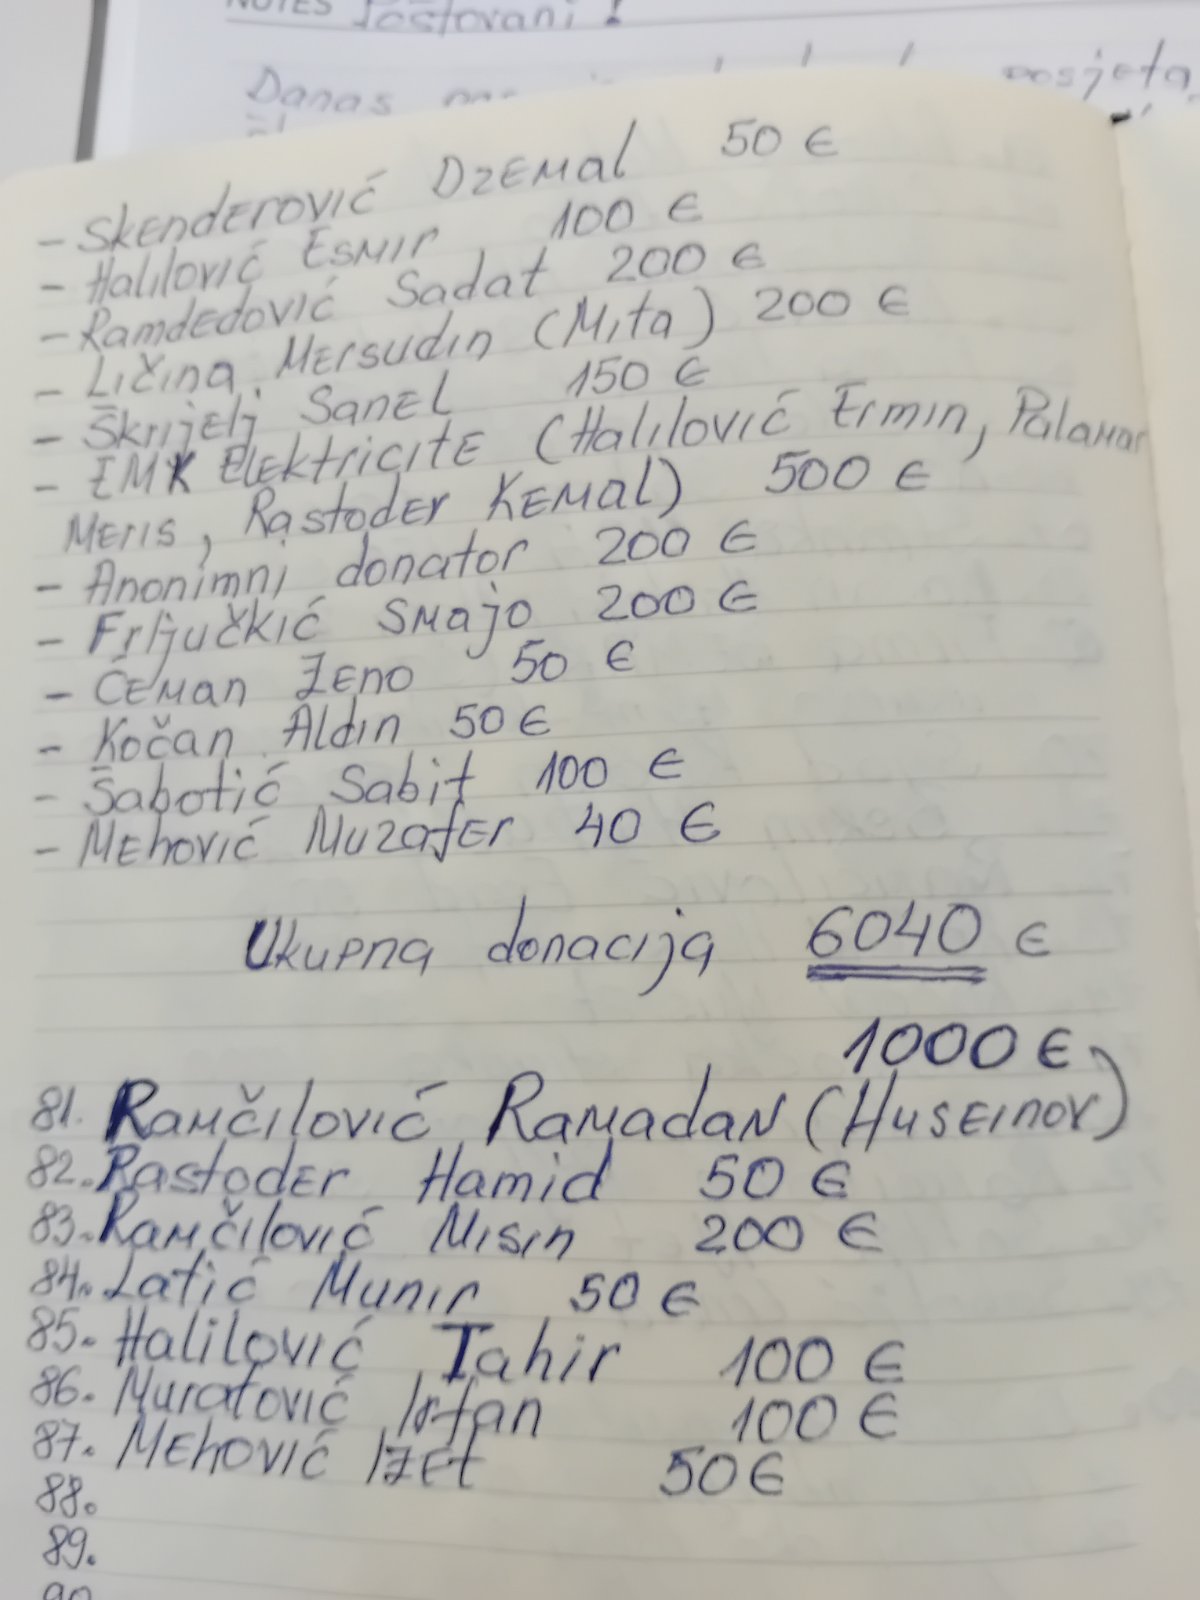 NOTES Poštovani!
Danas posjeta,
- Skenderović Dzemal 50 €
- Halilović Esmir 100 €
- Ramdedović Sadat 200 €
- Ličina Mersudin (Mita) 200 €
- Škrijelj Sanel 150 €
- EMK Elektricite (Halilović Ermin, Palamar
Meris, Rastoder Kemal) 500 €
- Anonimni donator 200 €
- Frljučkić Smajo 200 €
- Ćeman Zeno 50 €
- Kočan Aldin 50 €
- Šabotić Sabit 100 €
- Mehović Muzafer 40 €
Ukupna donacija 6040 €
1000 €
81. Ramčilović Ramadan (Huseinov)
82. Rastoder Hamid 50 €
83. Ramčilović Misin 200 €
84. Latić Munir 50 €
85. Halilović Tahir 100 €
86. Muratović Irfan 100 €
87. Mehović Izet 50 €
88.
89.
90